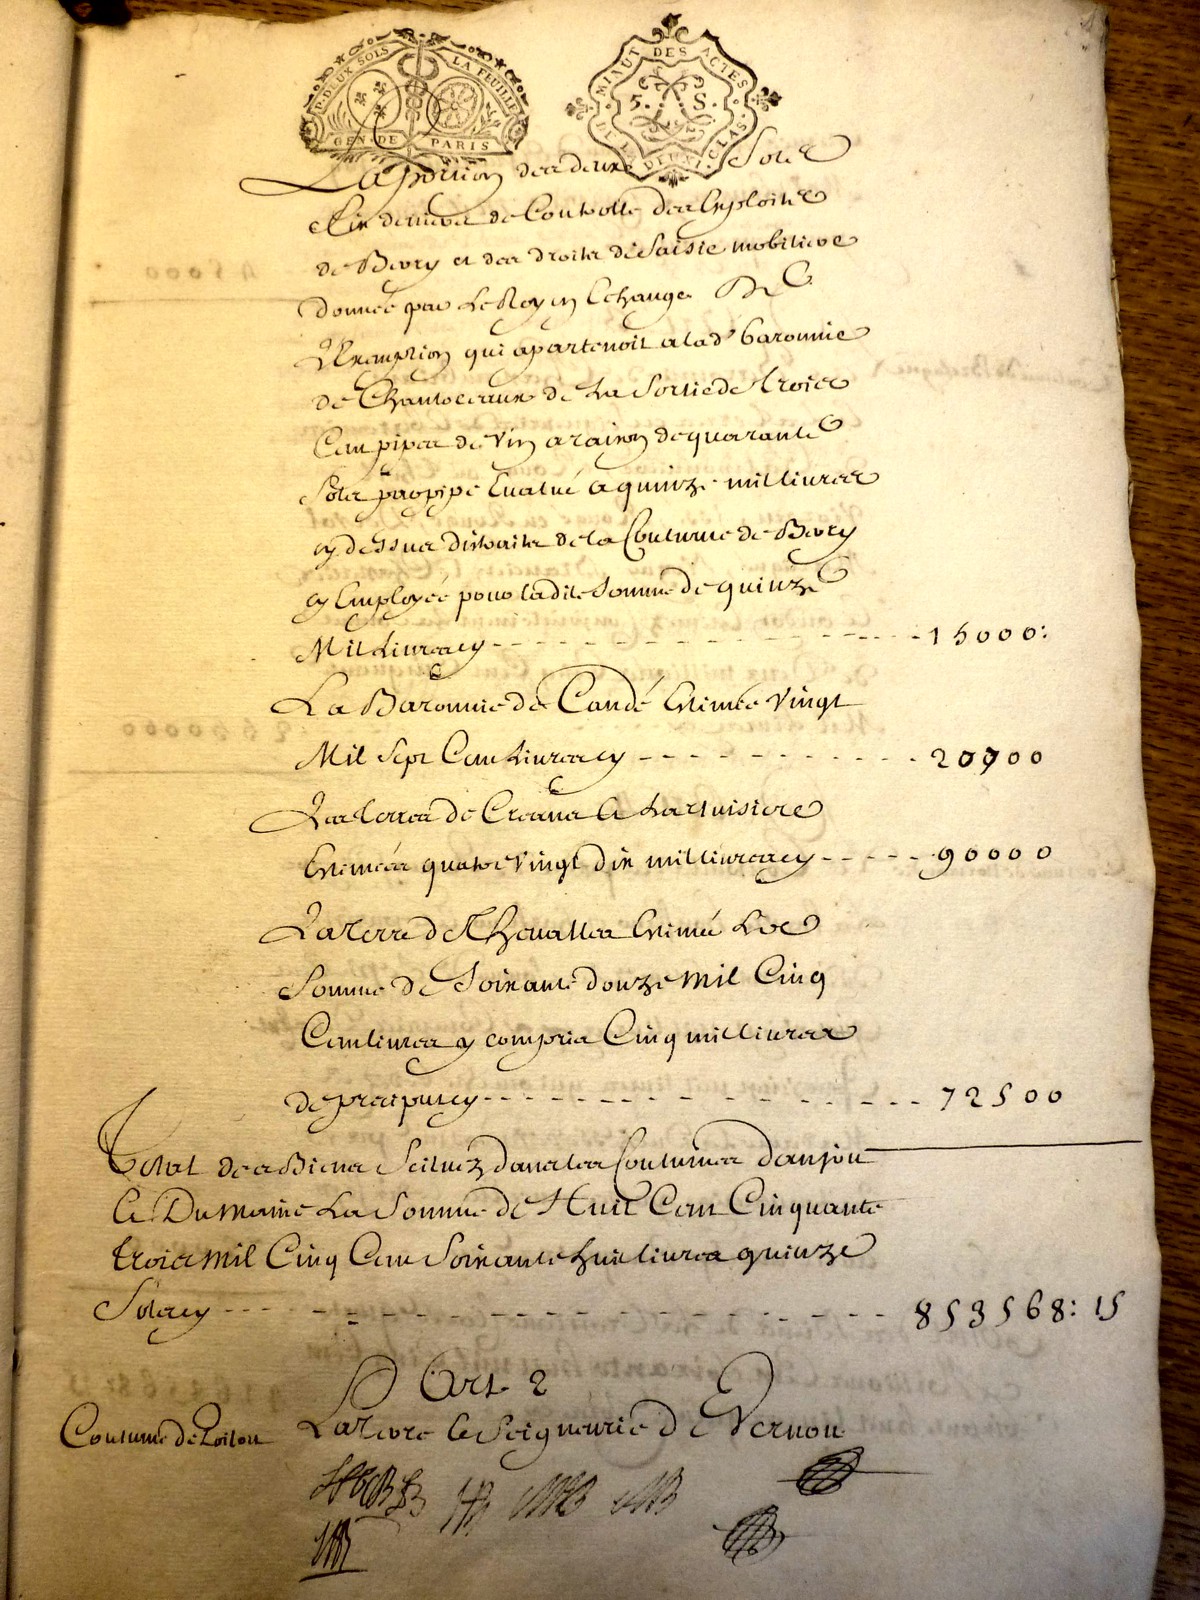 P. DEUX SOLS LA FEUILLE
GEN. DE PARIS
MINUT DES ACTES
5. S.
DE LA DEUXI. CLAS.
La portion des deux Sols
Six deniers de Controlle des Exploits
de Bevry et des droits de Saisie mobiliere
donnée par Le Roy en Echange De
L'Exemption qui apartenoit a lad. baronnie
de Chantoceaux de La Sortie de Trois
Cens pipes de Vin a raison de quarante
Sols par pipe Evalué a quinze mil livres
cy dessus distraite de la Coutume de Bevry
cy Employée pour ladite Somme de quinze
Mil Livres cy - - - 15000:
La Baronnie de Candé Estimée Vingt
Mil Sept Cens Livres cy - - - 20700
Les Terres de
Estimées quatre Vingt dix mil livres cy - - - 90000
La Terre de Estimé La
Somme de Soixante douze Mil Cinq
Cens livres y compris Cinq mil livres
de preciput cy - - - 72500
Total des Biens Scituez dans les Coutumes d'anjou
Et Du Maine La Somme de Huit Cens Cinquante
trois Mil Cinq Cens Soixante huit livres quinze
Sols cy - - - 853568: 15
Art. 2
Coutume de Poitou
La Terre et Seigneurie de Vernon